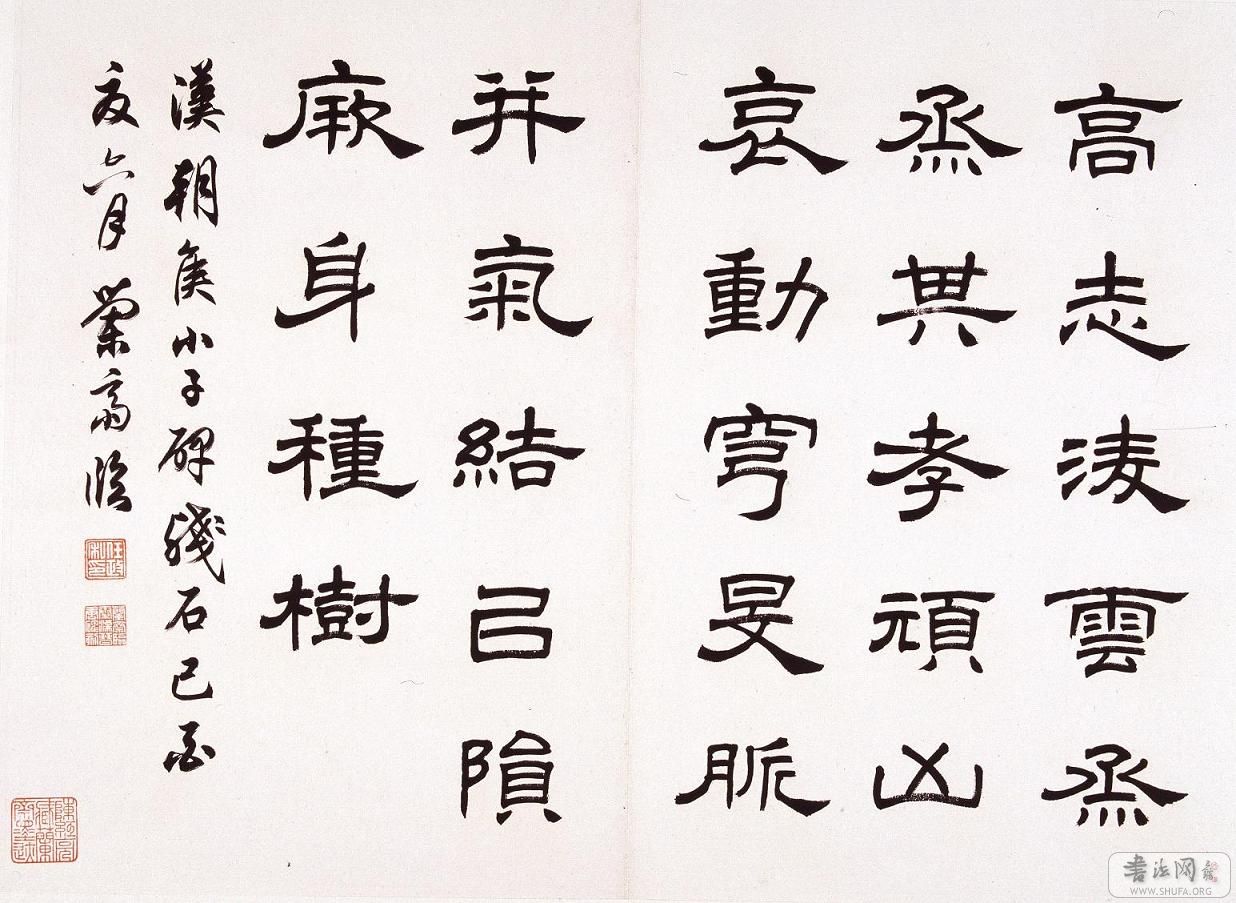 高志凌雲烝
烝其孝頑凶
哀動穹旻脈
并氣結以隕
厥身種樹
漢朝侯小子碑殘石己酉
夏六月蘭齋臨
書法网
WWW.SHUFA.ORG